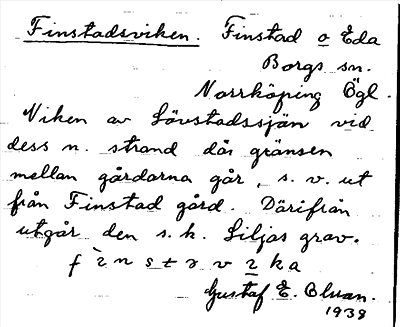 Finstadsviken. Finstad o Eda
Borgs sn.
Norrköping Ögl.
Viken av Lövstadssjön vid
dess n. strand där gränsen
mellan gårdarna går, s. v. ut
från Finstad gård. Därifrån
utgår den s. k. Liljas grav.
Gustaf E.
1938